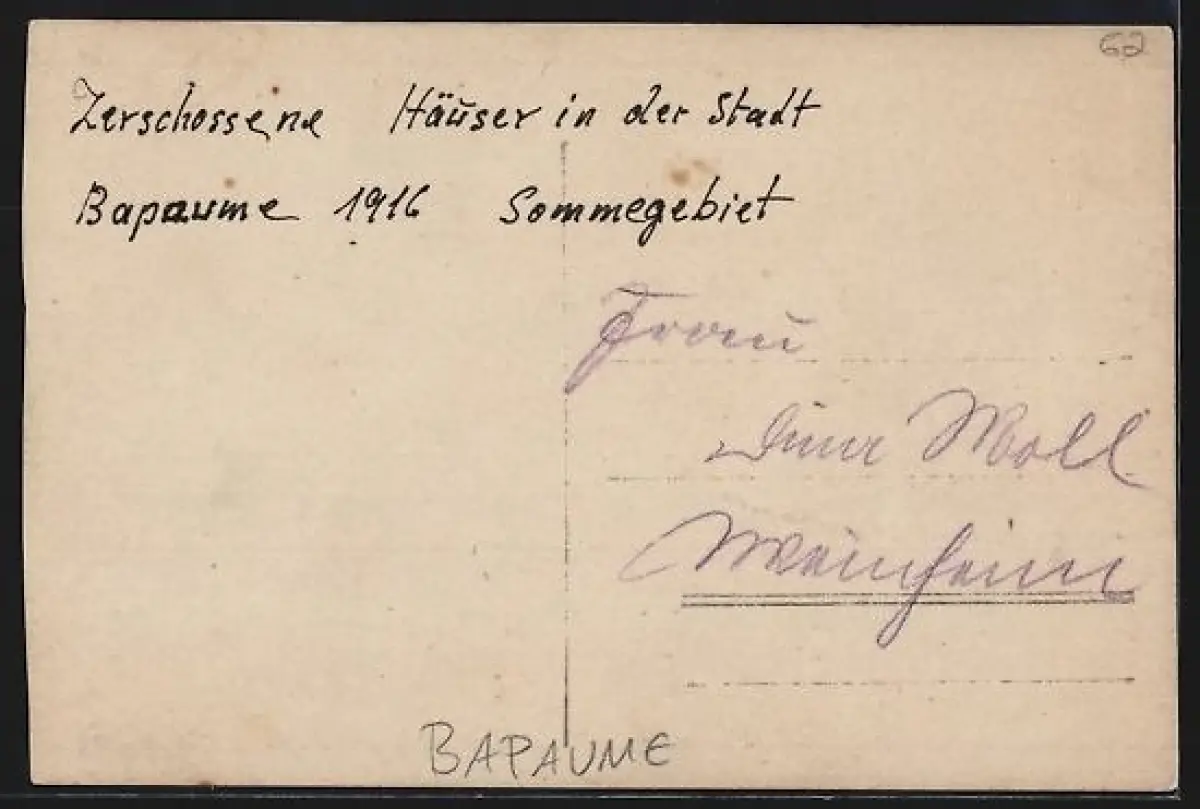 62
Zerschossene Häuser in der Stadt
Bapaume 1916 Sommegebiet
Frau
Moll
Weinheim
BAPAUME